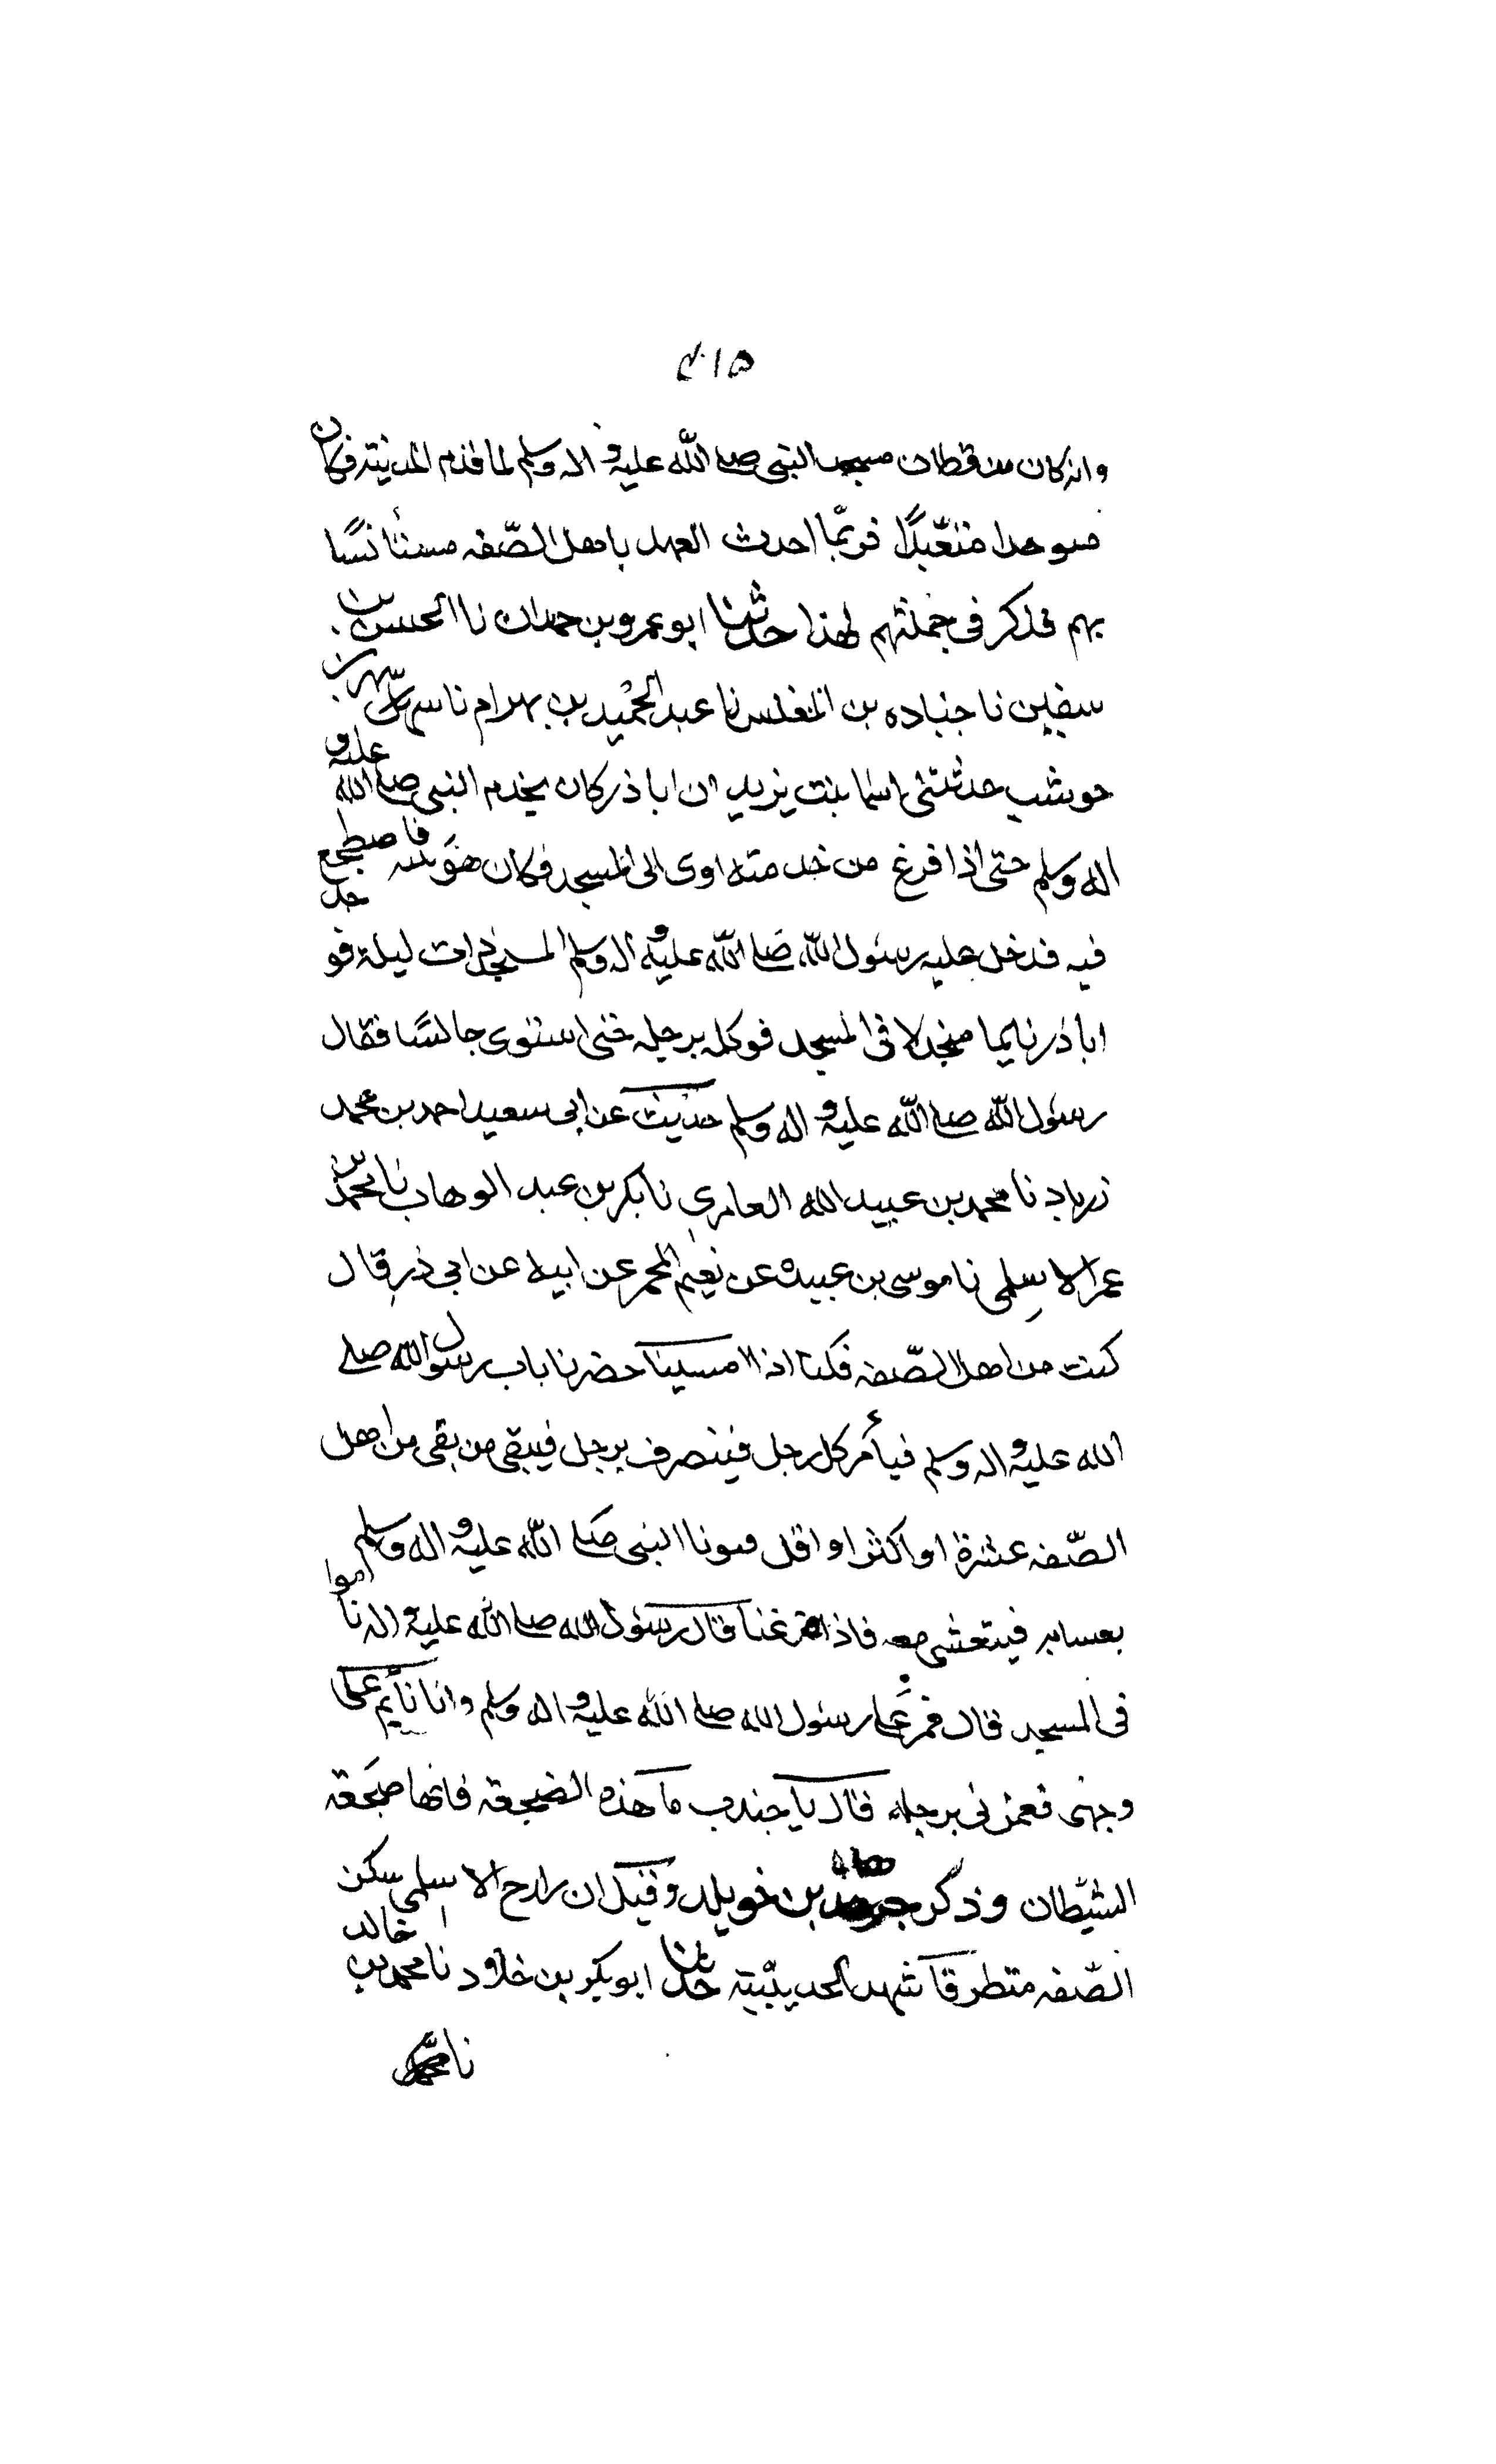 ٤١٥
وانه كان من قطان مسجد النبى صلى الله عليه و اله وسلم لما قدم المدينة فكان
متوحدا متعبدًا فربّما احدث العهد باهل الصّفه مستأنسًا
بهم فذكر فى جملتهم لهذا حدثنا ابو عمرو بن حمدان نا الحسن بن
سفين نا جباده بن المغلس نا عبد الحميد بن بهرام نا شهر بن
حوشب حدثتنى اسما بنت يزيد ان ابا ذر كان يخدم النبى صلى الله عليه و
اله وسلم حتى اذا فرغ من خدمته اوى الى المسجد فكان هو بيته فاضطجع
فيه فدخل عليه رسول الله صلى الله عليه و اله وسلم المسجد ذات ليلة فوجد
اباذر نايما منجدلا فى المسجد فوكله برجله حتى استوى جالسًا فقال
رسول الله صلى الله عليه و اله وسلم حديث عن ابى سعيد احمد بن محمد
زياد نا محمد بن عبيد الله العامرى نا بكر بن عبد الوهاب نا محمد بن
عمر الاسلمى نا موسى بن عبيده عن نعيم المجمر عن ابيه عن ابى ذر قال
كنت من اهل الصّفه فكنا اذا امسينا حضرنا باب رسول الله صلى
الله عليه و اله وسلم فيأمر كل رجل فينصرف برجل فيبقى من بقى من اهل
الصّفه عشرة او اكثر او اقل النبى صلى الله عليه و اله وسلم
بعسايه فيتعشى معه فاذا فرغنا قال رسول الله صلى الله عليه و اله ناموا
فى المسجد قال فمر على رسول الله صلى الله عليه و اله وسلم وانا نايم على
وجهى فغمزنى برجله قال يا جندب ما هذه الضجعة فانها ضجعة
الشيطان وذكر جرهد بن خويلد وقيل ابن رازح الاسلمى سكن
الصّفه متطرقا شهد الحديبية حدثنا ابو بكر بن خلاد نا محمد بن خالد
نا محمد